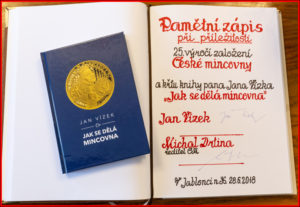 JAN VÍZEK
JAK SE DĚLÁ
MINCOVNA
Pamětní zápis
při příležitosti
25. výročí založení
České mincovny
a křtu knihy pana Jana Vízka
"Jak se dělá mincovna"
Jan Vízek
Michal Drtina
ředitel ČM
V Jablonci n.N. 28.6.2018